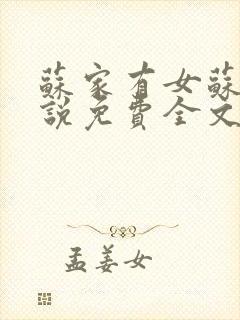 蘇家有女蘇
說免費全文
孟姜女